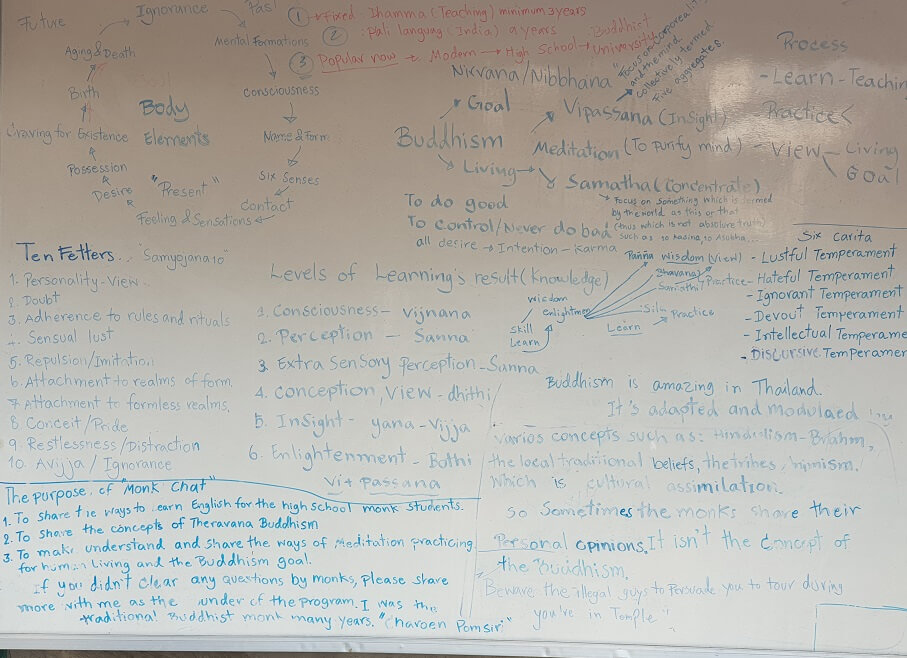 Future
Ignorance
Past
Aging & Death
Mental Formations
Birth
Consciousness
Body
Elements
Craving for Existence
Name & Form
Possession
Six Senses
Desire
"Present"
Contact
Feeling & Sensations
1 Fixed - Dhamma (Teaching) minimum 3 years
2 Pali langung (India) 9 years
3 Popular now Modern High School University
Buddhist
Nirvana/Nibbhana
"Focus on
and the mind
collectively termed
Five aggregates.
Goal
Vipassana (InSight)
Buddhism
Meditation (To purify mind)
Living
Samatha (Concentrate)
Focus on Something which is termed
by the world as this or that
(thus which is not absolure truth)
such as
To do good
To control/Never do bad
all desire Intention - Karma
Process
- Learn - Teachin
Practice <
- View
Living
Goal
Ten Fetters.. "Samyojana 10"
1. Personality-View..
2. Doubt
3. Adherence to rules and rituals
4. Sensual lust
5. Repulsion/Imitation
6. Attachment to realms of form.
7 Attachment to formless realms.
8. Conceit/Pride
9. Restlessness/Distraction
10. Avijja/Ignorance
Levels of Learning's result (Knowledge)
1. Consciousness - Vijnana
2. Perception - Sanna
3. Extra Sensory Perception - Sanna
4. Conception, View - dhithi
5. InSight - yana-Vijja
6. Enlightenment - Bothi
Vi + Passana
Panna Wisdom (View)
Bhavana
Samathi
Practice
Sil - Practice
Learn
Wisdom
Enlightmen
Skill
Learn
Six Carita
- Lustful Temperament
- Hateful Temperament
- Ignorant Temperament
- Devout Temperament
- Intellectual Temperame
- Discursive Temperamen
Buddhism is amazing in Thailand.
It's adapted and modulaed
varios concepts such as: Hinduism-Brahm,
the local traditional beliefs, the tribes,
which is cultural assimilation.
So Sometimes the monks share their
Personal opinions. It isn't the concept of
the Buddhism.
Beware the illegal guys to Persuade you to tour during
you're in Temple
The purpose of "Monk Chat"
1. To share the ways to learn English for the high school monk students.
2. To share the concepts of Theravana Buddhism
3. To make understand and share the ways of Meditation practicing
for human Living and the Buddhism goal.
If you didn't clear any questions by monks, please share
more with me as the under of the program. I was the
traditional Buddhist monk many years. "Charoen Pomsiri"